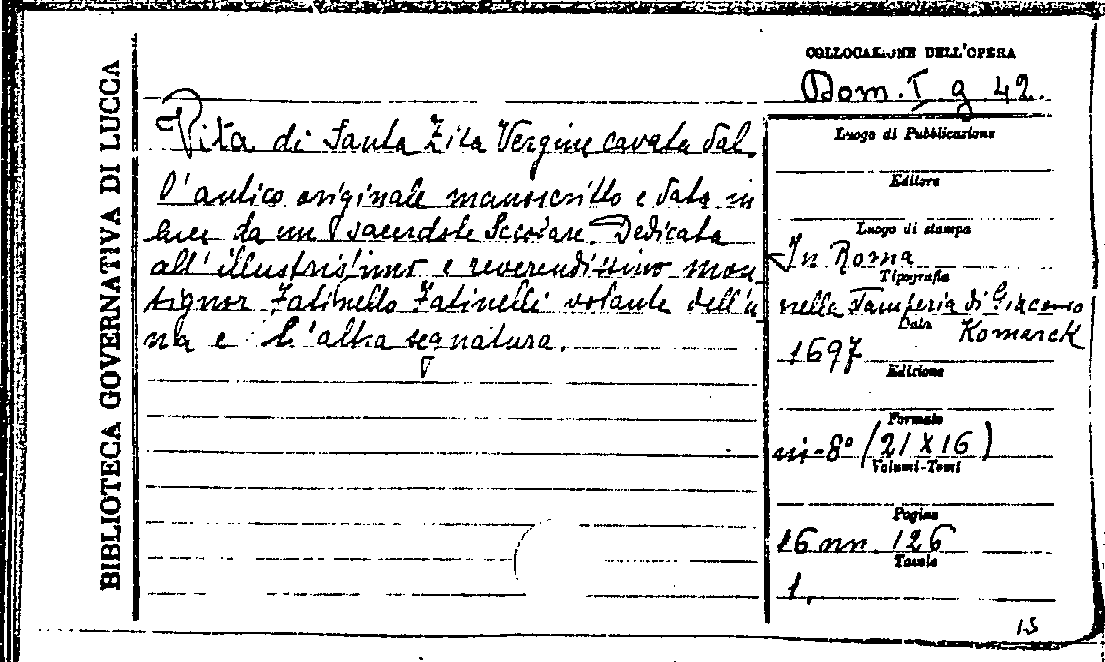 BIBLIOTECA GOVERNATIVA DI LUCCA
COLLOCAZIONE DELL'OPERA
Dom. I g 42.
Vita di Santa Zita Vergine cavata dal
l'antico originale manoscritto e data in
luce da un sacerdote Secolare. Dedicata
all'illustrissimo e reverendissimo mon
signor Fatinello Fatinelli votante dell'u
na e l'altra segnatura.
Luogo di Pubblicazione
Editore
Luogo di stampa
In Roma
Tipografia
nella Stamperia di Giacomo
Komarek
Data
1697
Edizione
Formato
in-8° (21 X 16)
Volumi-Tomi
Pagine
16 nn. 126
Tavole
1.
15